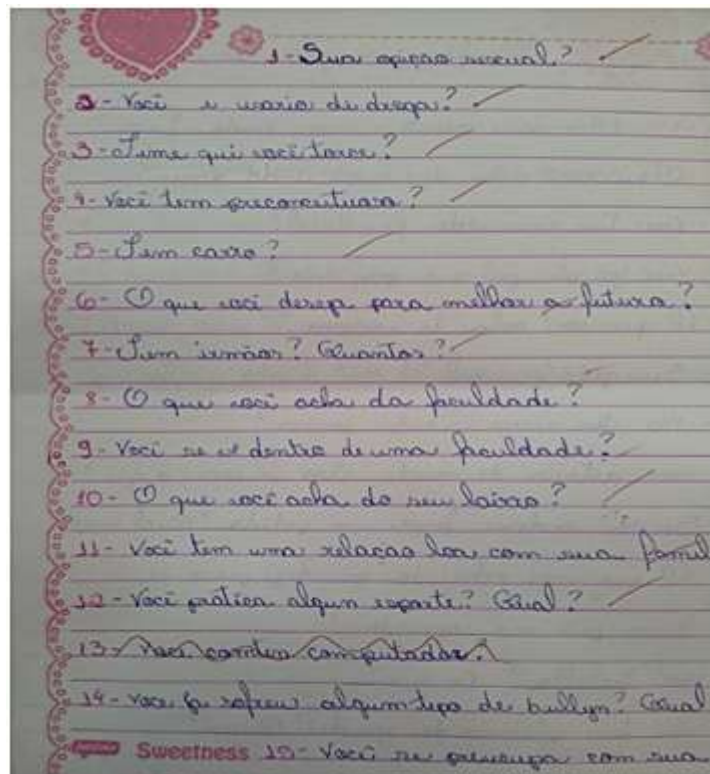 1- Sua opição sexual?
2- Você é usario de droga?
3- Time que você torce?
4- Você tem preconceituara?
5- Tem carro?
6- O que você deseja para melhar o futura?
7- Tem irmãos? Quantos?
8- O que você acha da faculdade?
9- Você se vê dentro de uma faculdade?
10- O que você acha do seu bairro?
11- Você tem uma relaçao boa com sua famil
12- Você prática algun esporte? Qual?
13- Você computador.
14- você ja sofreu algum tipo de bullyn? Qual
Sweetness 15- Você se preucupa com sua